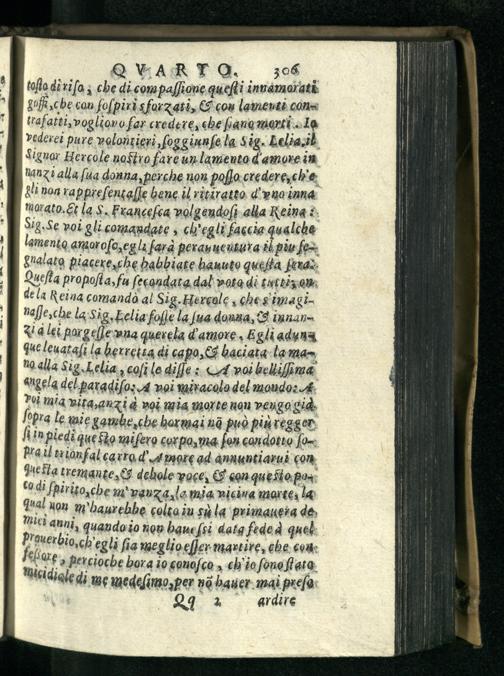 QVARTO. 306
tosto di riso, che di compassione questi innamorati
goffi, che con sospiri sforzati, & con lamenti con-
trafatti, vogliono far credere, che siano morti. Io
vederei pure volontieri, soggiunse la Sig. Lelia, il
Signor Hercole nostro fare un lamento d'amore in
nanzi alla sua donna, perche non posso credere, ch'e
gli non rappresentasse bene il ritiratto d'vno inna
morato. Et la S. Francesca volgendosi alla Reina:
Sig. Se voi gli comandate, ch'egli faccia qualche
lamento amoroso, egli sarà perauuentura il piu se-
gnalato piacere, che habbiate hauuto questa sera.
Questa proposta, fu secondata dal voto di tutti; on
de la Reina comandò al Sig. Hercole, che s'imagi-
nasse, che la Sig. Lelia fosse la sua donna, & innan-
zi à lei porgesse vna querela d'amore. Egli adun-
que leuatasi la berretta di capo, & baciata la ma-
no alla Sig. Lelia, cosi le disse: A voi bellissima
angela del paradiso: A voi miracolo del mondo: A
voi mia vita, anzi à voi mia morte non vengo già
sopra le mie gambe, che hormai nõ può più regger
si in piedi questo misero corpo, ma son condotto so-
pra il trionfal carro d'Amore ad annuntiarui con
questa tremante, & debole voce, & con questo po-
co di spirito, che m'vanza, la mia vicina morte, la
qual non m'haurebbe colto in sù la primauera de
miei anni, quando io non hauessi data fede à quel
prouerbio, ch'egli sia meglio esser martire, che con
fessore, percioche hora io conosco, ch'io sono stato
micidiale di me medesimo, per nõ hauer mai preso
Qq 2 ardire